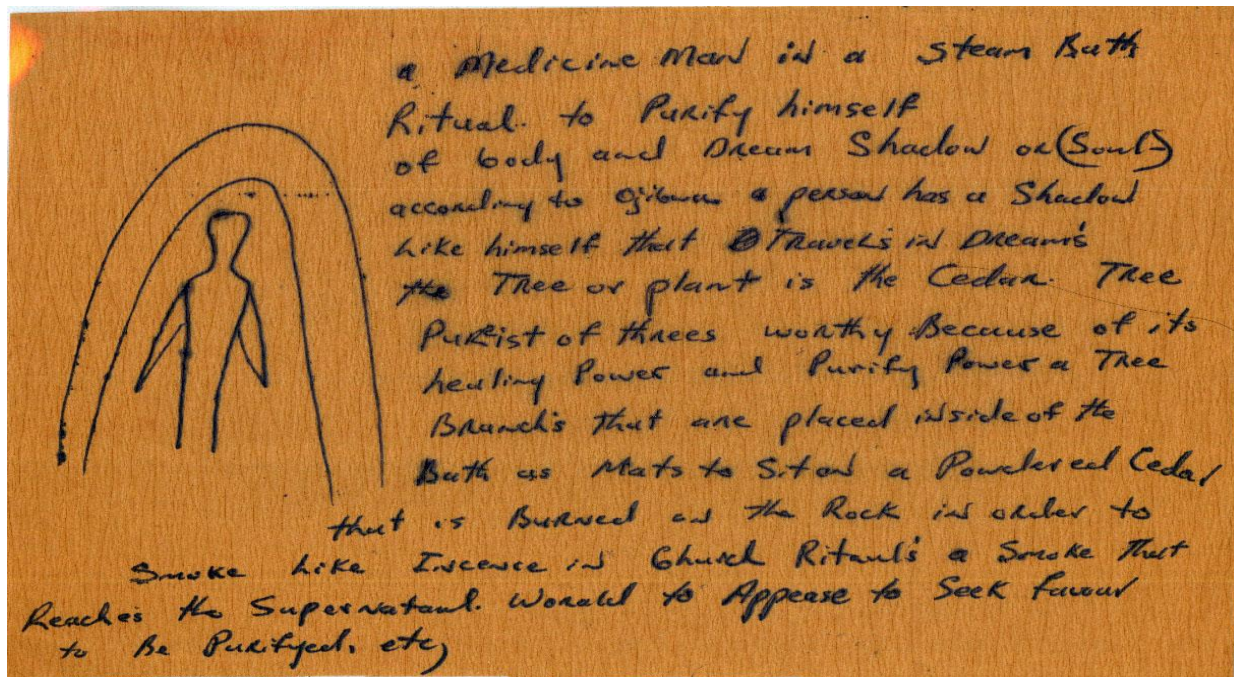 a Medicine Man in a Steam Bath
Ritual. to Purify himself
of body and Dream Shadow or (Soul)
according to Ojibwa a person has a Shadow
Like himself that Travels in Dream's
the Tree or plant is the Cedar. Tree
Purist of threes worthy Because of its
healing Power and Purify Power a Tree
Branch's that are placed inside of the
Bath as Mats to Sit on a Powdered Cedar
that is Burned on the Rock in order to
Smoke Like Incence in Church Ritaul's a Smoke that
Reaches the Supernataul. Worald to Appease to Seek favour
to Be Purifyed, etc,